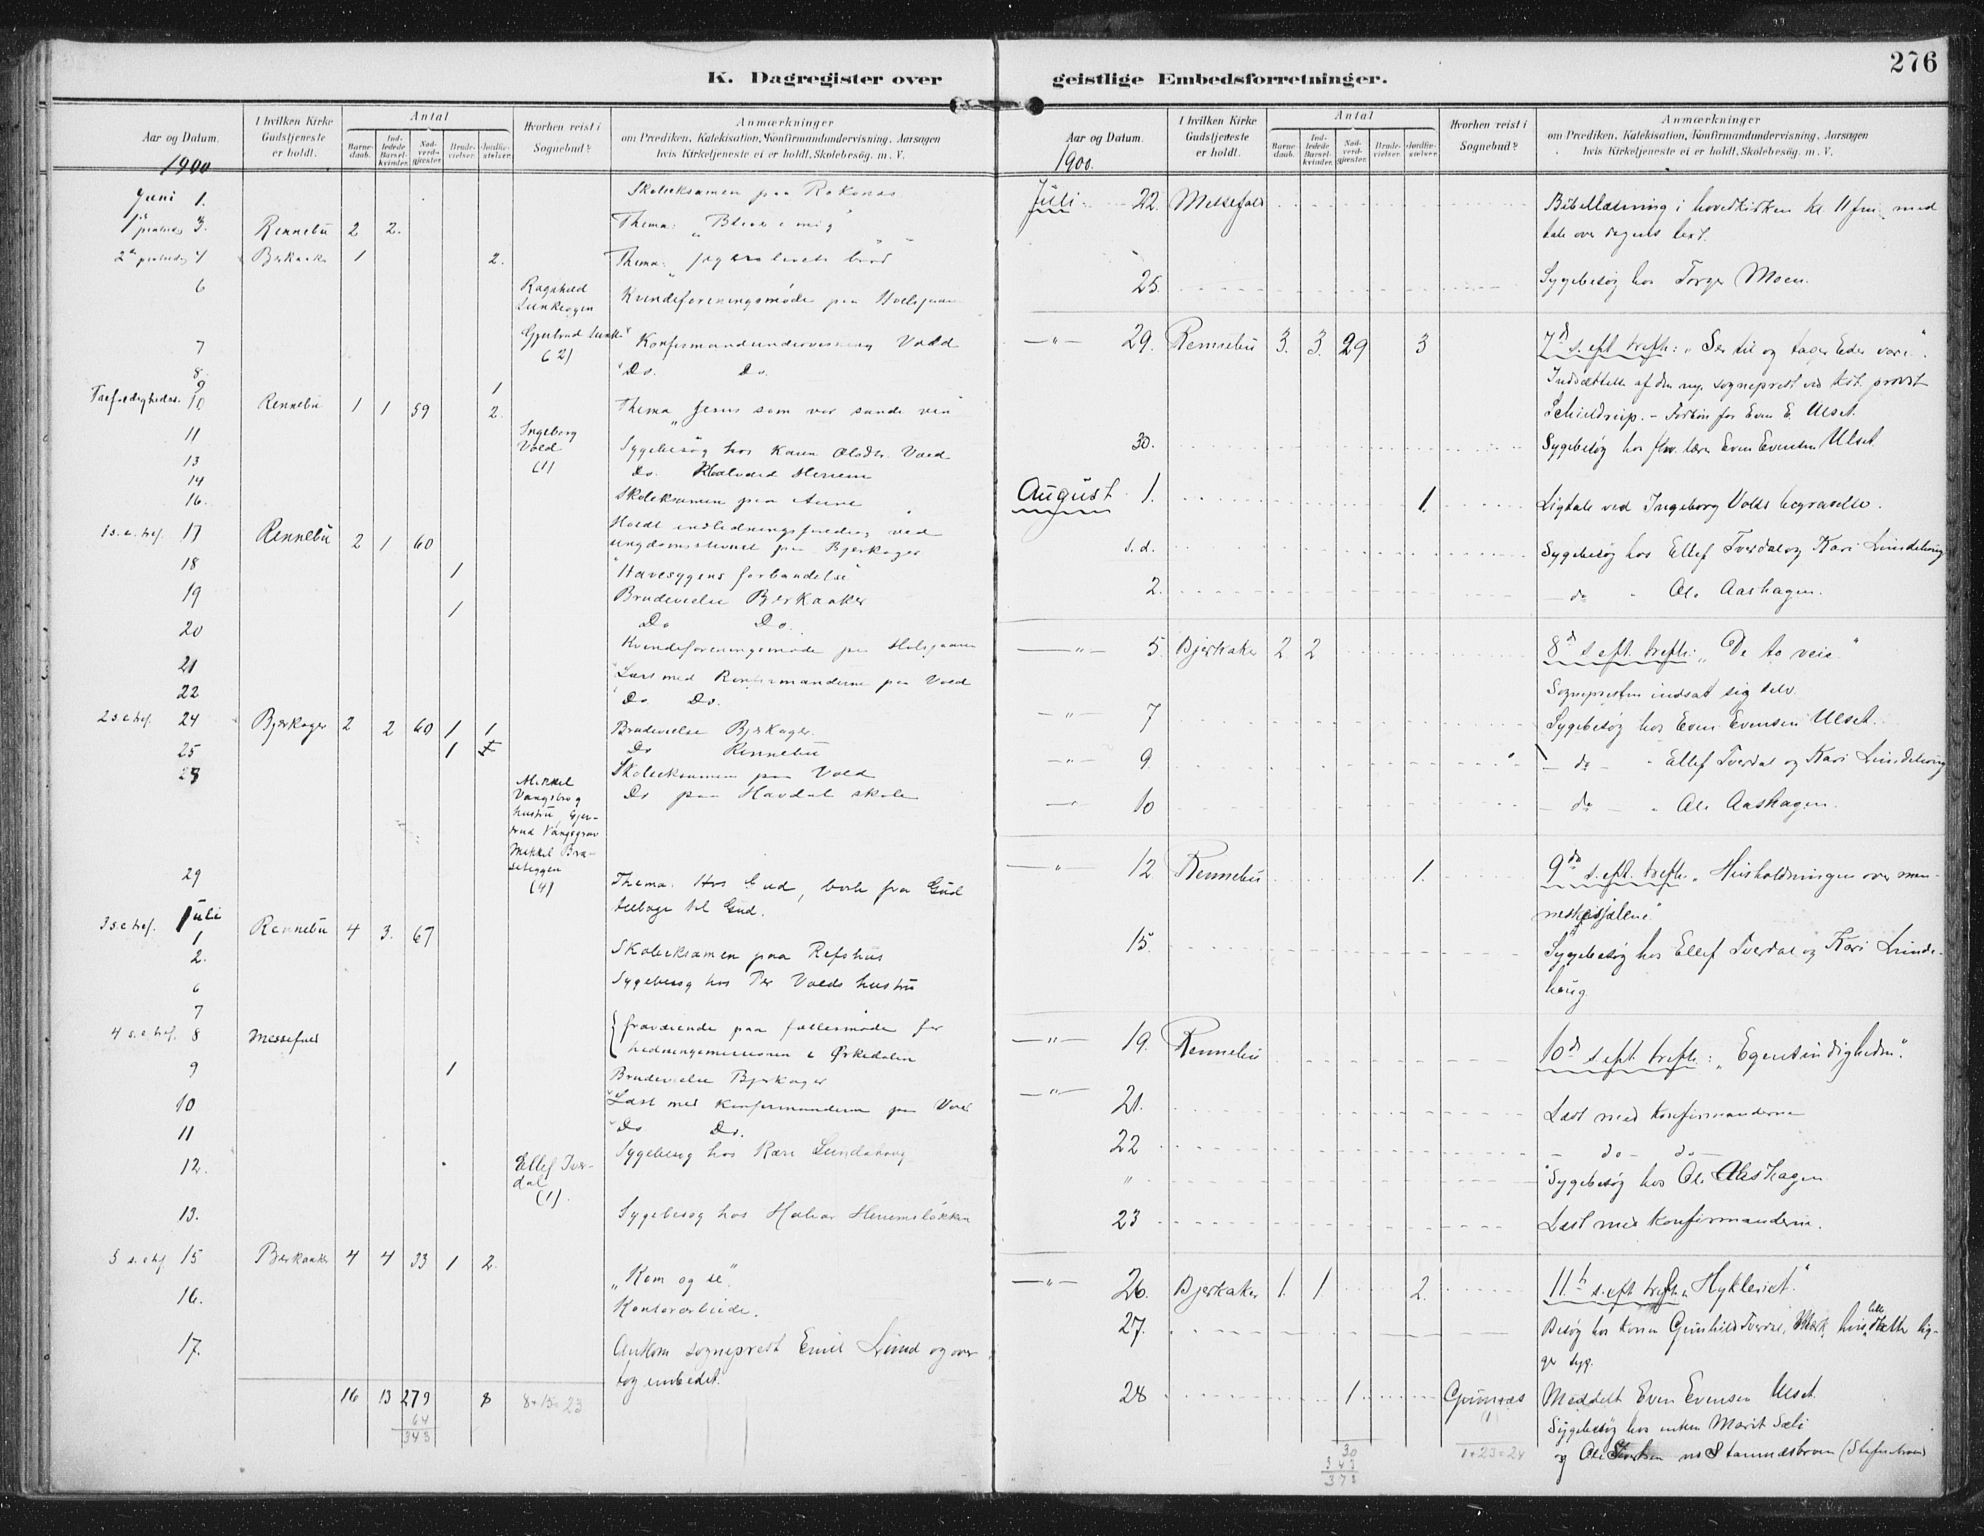 276
K. Dagregister over geistlige Embedsforretninger.
Aar og Datum.
I hvilken Kirke Gudstjeneste er holdt.
Antal
Barnedaab.
Indledede Barselkvinder.
Nadverdgjester.
Brudevielser.
Jordfæstelser.
Hvorhen reist i Sognebud?
Anmærkninger
om Prædiken, Katekisation, Konfirmandundervisning, Aarsagen
hvis Kirketjeneste ei er holdt, Skolebesøg. m. V.
1900
Juni 1. Skoleeksamen paa
3. Rennebu 2 2. Thema: "Bliv i mig"
4 Berkaaker 1 2. Thema: "
6 Ragnhild Kvindeforeningsmøde paa
7 Gjertrud (2) "Konfirmandundervisning Vold
8. "Do. Do.
9 1
10 Rennebu 1 1 59 2. Thema "Jesus som vor sande ven"
11 Ingeborg Vold (1) Sygebesøg hos Karen Olsdtr. Vold
13 Do.
14 Skoleeksamen paa
16. Holdt indledningsforedrag ved
1 s. e. tref. 17 Rennebu 2 1 60 ungdomsstevnet paa Bjerkager
18 1 "Havesygens forbandelse"
19 1 Brudevielse Berkaaker
20 Do Do.
21 Kvindeforeningsmøde paa
22 "Læst med Konfirmanderne paa Vold
"Do Do.
2 s e tref. 24 Bjerkager 2 2 60 1 1 Brudevielse Bjerkager.
25 1 Do Rennebu
Skoleeksamen paa Vold
Mikkel Do paa Havdal skole
hustru, Gjertrud
Mikkel
(4)
29 Thema: Hos Gud, bort fra Gud
tilbage til Gud.
Juli
3 s e tref. 1 Rennebu 4 3. 67
2. Skoleeksamen paa Refshus
6 Sygebesøg hos Per Volds hustru
7
4 s. e tref. 8 Messefald fraværende paa fællesmøde for
hedningemissionen i Ørkedalen
9 1 Brudevielse Bjerkager
10 "Læst med Konfirmanderne paa Vold
11 "Do Do.
12. Ellef Tverdal (1). Sygebesøg hos Kari
13. Sygebesøg hos
5 s. e tref 15 Berkaaker 4 4 33 1 2. "Kom og se".
16. Kontorarbeide.
17. Ankom sogneprest Emil Lund og over-
tog embedet.
16 13 279 8 8+15=23
64
343
Aar og Datum.
I hvilken Kirke Gudstjeneste er holdt.
Antal
Barnedaab.
Indledede Barselkvinder.
Nadverdgjester.
Brudevielser.
Jordfæstelser.
Hvorhen reist i Sognebud?
Anmærkninger
om Prædiken, Katekisation, Konfirmandundervisning, Aarsagen
hvis Kirketjeneste ei er holdt, Skolebesøg. m. V.
1900.
Juli 22. Messefald Bibellæsning i hovedkirken kl. 11 fm. med
tale over dagens text.
25. Sygebesøg hos Torger Moen.
29. Rennebu 3. 3. 29 3 7d s. eft. trefh.: "Ser til og tager Eder vare".
Indsættelse af den nye sogneprest ved kst. provst
Schieldrup. - Forbøn for Even E. Ulset.
30. Sygebesøg hos fhv. lærer Even Evensen Ulset
August 1. 1. Ligtale ved Ingeborg Volds begravelse.
s.d. Sygebesøg hos Ellef Tverdal og Kari Lundehaug
2. do " Ole Aashagen.
5. Bjerkaker 2 2 8d s. eft. trefh.: "De to veie"
Sognepresten indsat sig selv.
7 Sygebesøg hos Even Evensen Ulset.
9. do - " Ellef Tverdal og Kari Lundehaug
10 do - " Ole Aashagen.
12 Rennebu 1. 9de s. eft. trefh. "Husholdningen over men-
neskesjælene."
15. Sygebesøg hos Ellef Tverdal og Kari Lunde-
haug
19. Rennebu 10d s. eft. trefh.: "Egenrindigheden".
21. Læst med konfirmanderne
22 do - do
" Sygebesøg hos Ole Aashagen
23 Læst med konfirmanderne.
26. Bjerkaker 1. 1 2. 11t s. eft trefh. "Hykleriet."
27. Besøg hos konen Gunhild Tverdal, hvis lille datter lig-
ger syg.
28 1 (1) Meddelt Even Evensen Ulset.
Sygebesøg hos enken Marit Sæli
og Ole
30
343
373
1+23=24